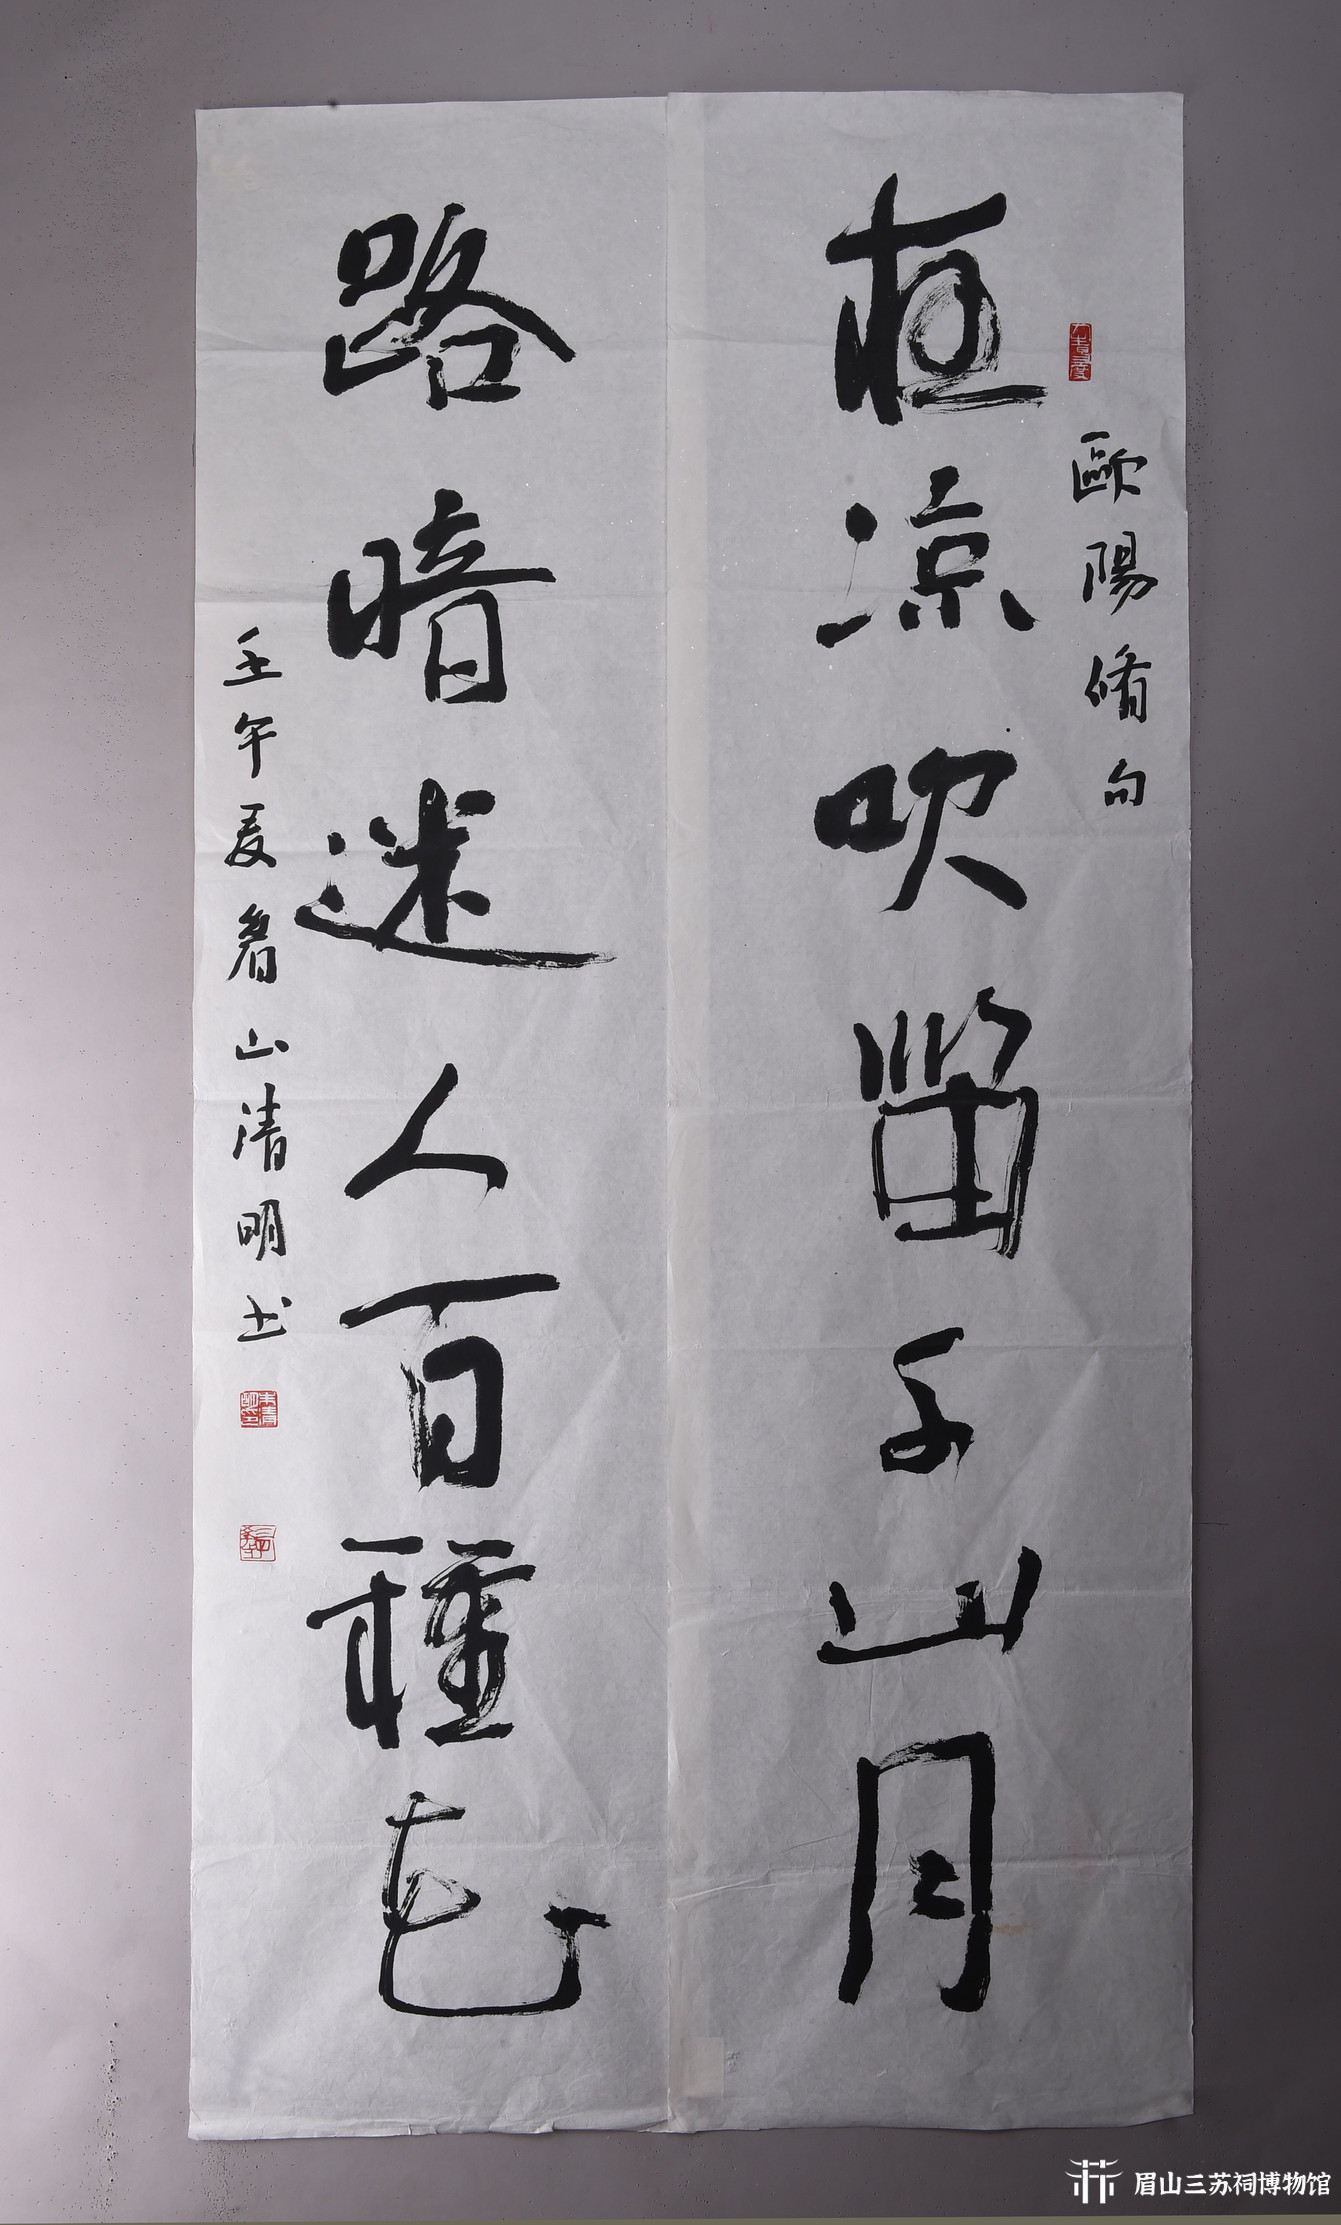 歐陽脩句
夜凉吹笛千山月
路暗迷人百種花
壬午夏眉山清明书
朱清明印
眉山三苏祠博物馆